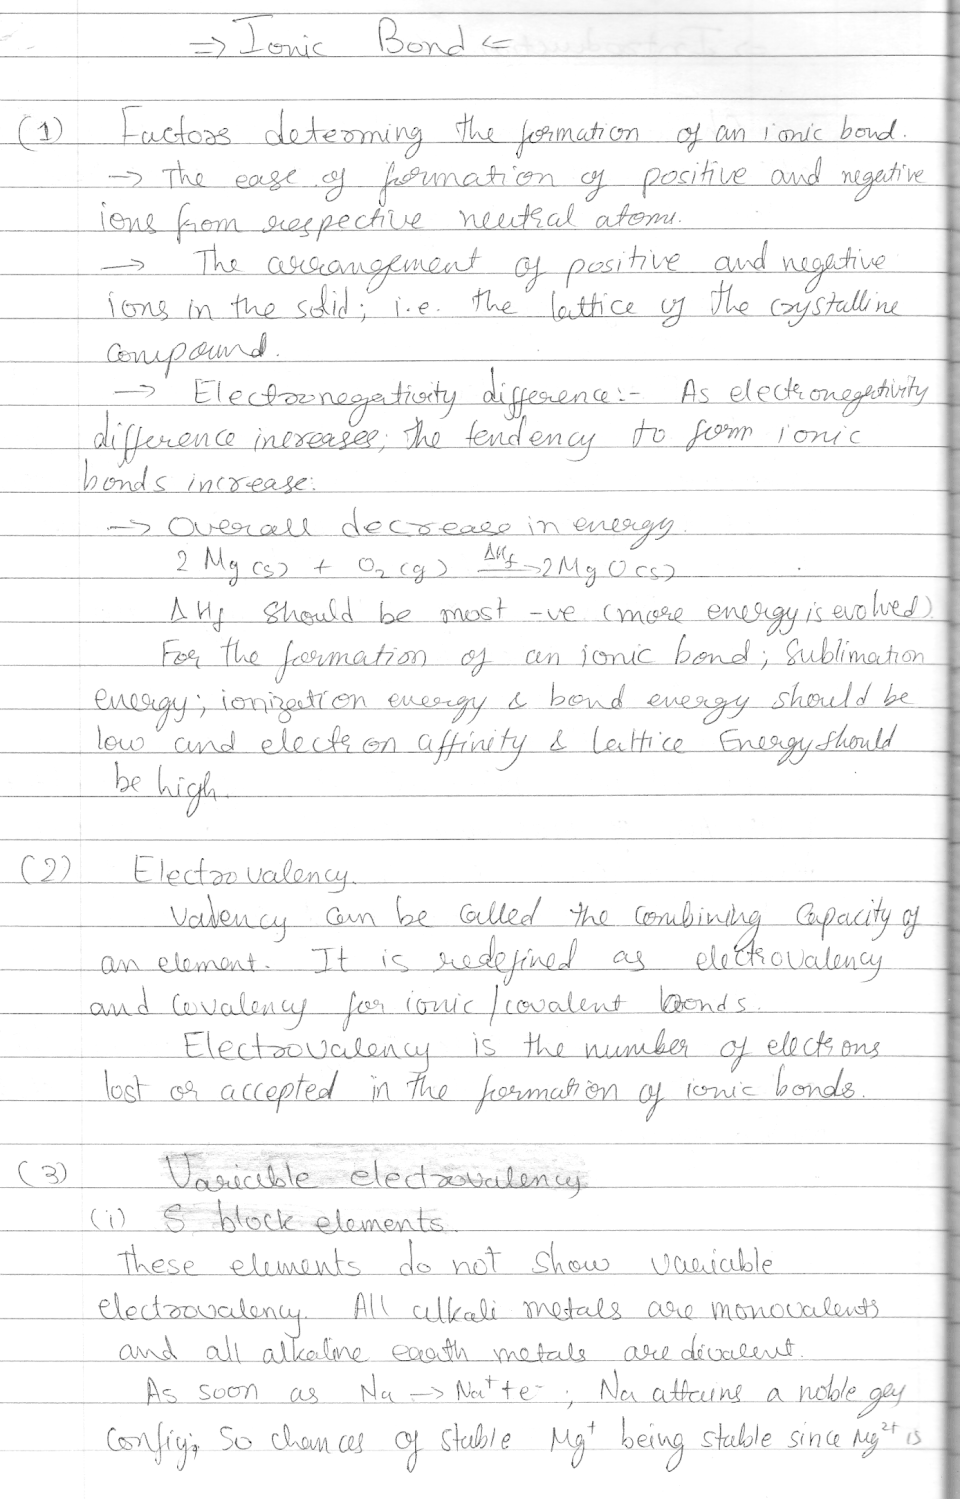 ⇒ Ionic Bond ⇐
(1) Factors determing the formation of an ionic bond.
→ The ease of formation of positive and negative
ions from respective neutral atoms.
→ The arrangement of positive and negative
ions in the solid; i.e. the lattice of the crystalline
compound.
→ Electronegativity difference:- As electronegativity
difference increases, the tendency to form ionic
bonds increase.
→ Overall decrease in energy.
2 Mg(s) + O₂(g) ΔHf→ 2MgO(s)
ΔHf should be most -ve (more energy is evolved)
For the formation of an ionic bond; Sublimation
energy; ionization energy & bond energy should be
low and electron affinity & Lattice Energy should
be high.
(2) Electrovalency.
Valency can be called the combining capacity of
an element. It is redefined as electrovalency
and covalency for ionic/covalent bonds.
Electrovalency is the number of electrons
lost or accepted in the formation of ionic bonds.
(3) Variable electrovalency
(i) S block elements.
These elements do not show variable
electrovalency. All alkali metals are monovalents
and all alkaline earth metals are divalent.
As soon as Na → Na⁺+e⁻; Na attains a noble gas
config; So chances of stable Mg⁺ being stable since Mg²⁺ is